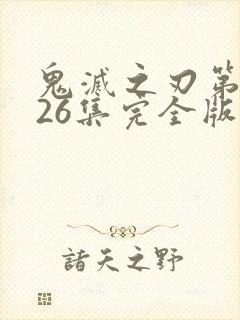 鬼滅之刃第
26集完全版
諸天之野